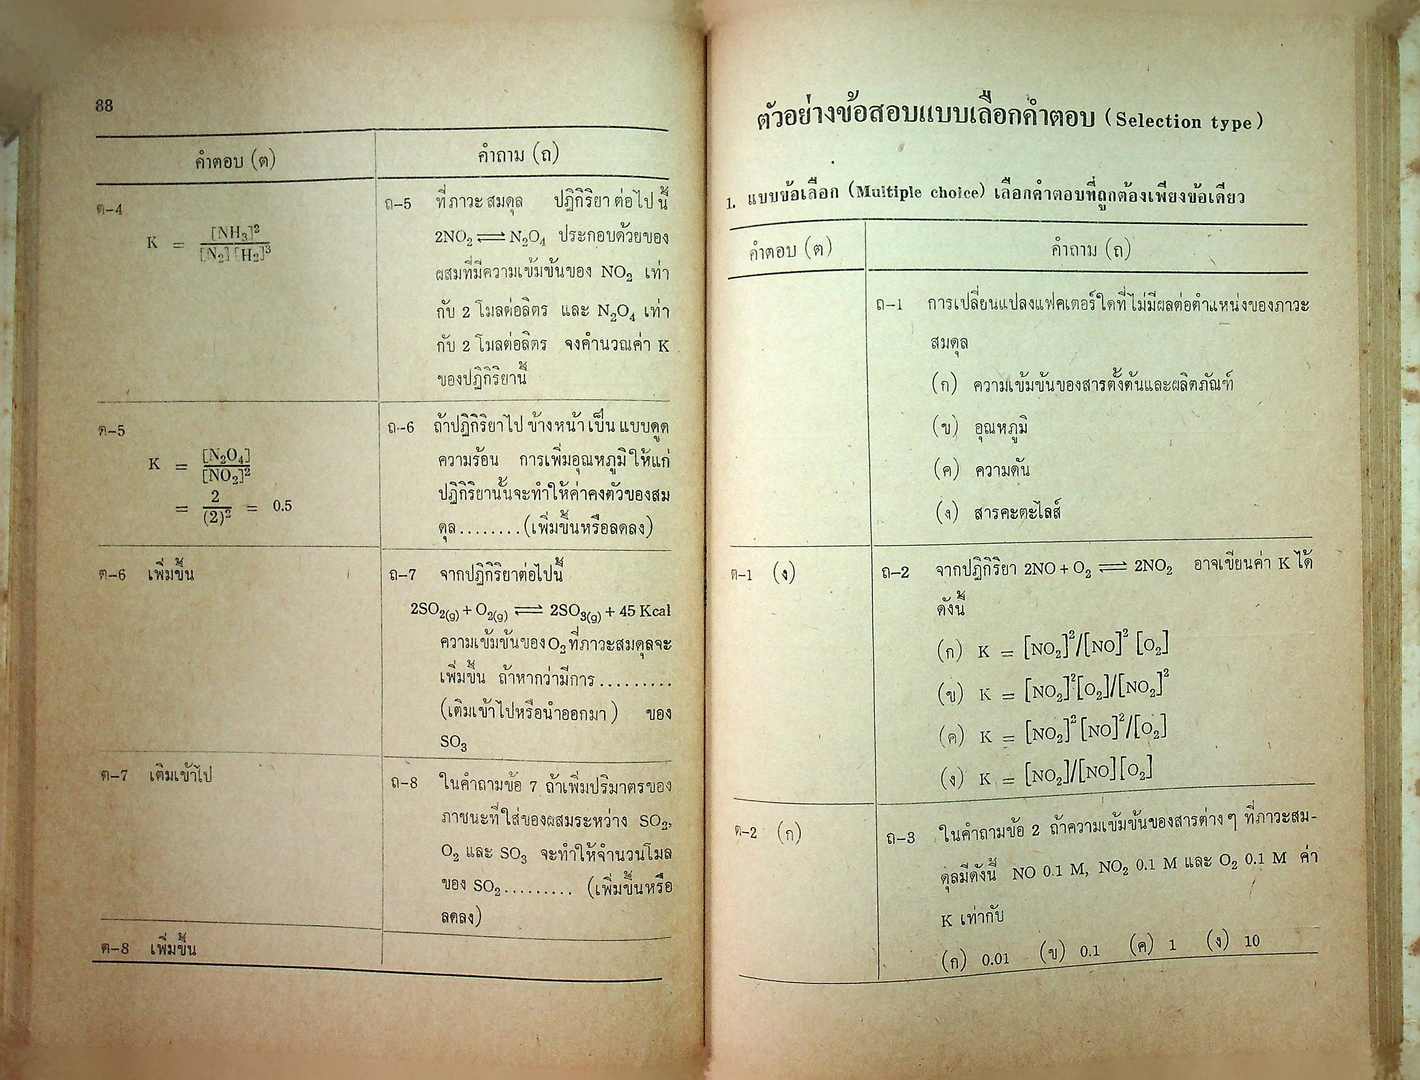 88
คำตอบ (ต)
คำถาม (ถ)
ต-4
K = [NH₃]² / [N₂] [H₂]³
ถ-5 ที่ภาวะสมดุล ปฏิกิริยาต่อไปนี้
2NO₂ ⇌ N₂O₄ ประกอบด้วยของ
ผสมที่มีความเข้มข้นของ NO₂ เท่า
กับ 2 โมลต่อลิตร และ N₂O₄ เท่า
กับ 2 โมลต่อลิตร จงคำนวณค่า K
ของปฏิกิริยานี้
ต-5
K = [N₂O₄] / [NO₂]²
= 2 / (2)² = 0.5
ถ-6 ถ้าปฏิกิริยาไปข้างหน้าเป็นแบบดูด
ความร้อน การเพิ่มอุณหภูมิให้แก่
ปฏิกิริยานั้นจะทำให้ค่าคงตัวของสม
ดุล........(เพิ่มขึ้นหรือลดลง)
ต-6 เพิ่มขึ้น
ถ-7 จากปฏิกิริยาต่อไปนี้
2SO₂(g) + O₂(g) ⇌ 2SO₃(g) + 45 Kcal
ความเข้มข้นของ O₂ ที่ภาวะสมดุลจะ
เพิ่มขึ้น ถ้าหากว่ามีการ.........
(เติมเข้าไปหรือนำออกมา) ของ
SO₃
ต-7 เติมเข้าไป
ถ-8 ในคำถามข้อ 7 ถ้าเพิ่มปริมาตรของ
ภาชนะที่ใส่ของผสมระหว่าง SO₂,
O₂ และ SO₃ จะทำให้จำนวนโมล
ของ SO₂......... (เพิ่มขึ้นหรือ
ลดลง)
ต-8 เพิ่มขึ้น
ตัวอย่างข้อสอบแบบเลือกคำตอบ (Selection type)
1. แบบข้อเลือก (Multiple choice) เลือกคำตอบที่ถูกต้องเพียงข้อเดียว
คำตอบ (ต)
คำถาม (ถ)
ถ-1 การเปลี่ยนแปลงแฟคเตอร์ใดที่ไม่มีผลต่อตำแหน่งของภาวะ
สมดุล
(ก) ความเข้มข้นของสารตั้งต้นและผลิตภัณฑ์
(ข) อุณหภูมิ
(ค) ความดัน
(ง) สารคะตะไลส์
ต-1 (ง)
ถ-2 จากปฏิกิริยา 2NO + O₂ ⇌ 2NO₂ อาจเขียนค่า K ได้
ดังนี้
(ก) K = [NO₂]²/[NO]² [O₂]
(ข) K = [NO₂]²[O₂]/[NO₂]²
(ค) K = [NO₂]²[NO]²/[O₂]
(ง) K = [NO₂]/[NO][O₂]
ต-2 (ก)
ถ-3 ในคำถามข้อ 2 ถ้าความเข้มข้นของสารต่าง ๆ ที่ภาวะสม-
ดุลมีดังนี้ NO 0.1 M, NO₂ 0.1 M และ O₂ 0.1 M ค่า
K เท่ากับ
(ก) 0.01 (ข) 0.1 (ค) 1 (ง) 10